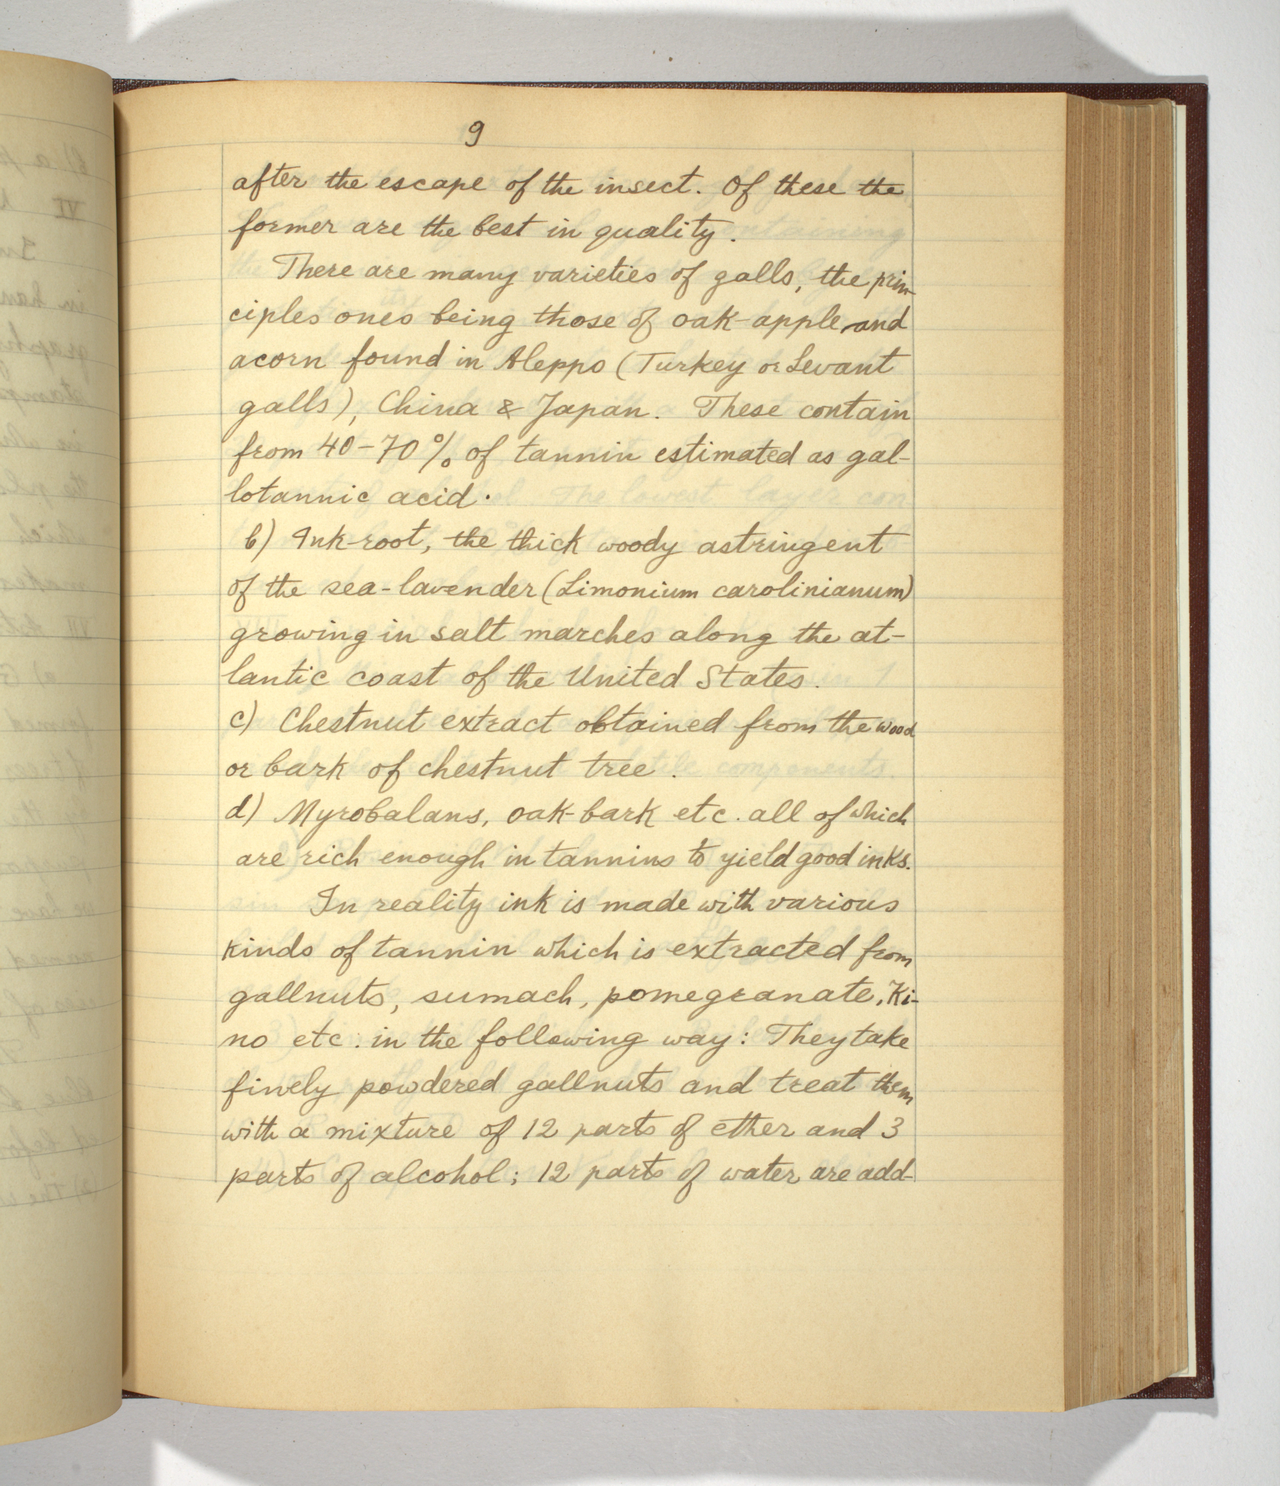 9
after the escape of the insect. Of these the
former are the best in quality.
There are many varieties of galls, the prin-
ciples ones being those of oak-apple and
acorn found in Aleppo (Turkey or Levant
galls), China & Japan. These contain
from 40-70% of tannin estimated as gal-
lotannic acid.
b) Ink-root, the thick woody astringent
of the sea-lavender (Limonium carolinianum)
growing in salt marches along the at-
lantic coast of the United States.
c) Chestnut extract obtained from the wood
or bark of chestnut tree.
d) Myrobalans, oak-bark etc. all of which
are rich enough in tannins to yield good inks.
In reality ink is made with various
kinds of tannin which is extracted from
gallnuts, sumach, pomegranate, Ki-
no etc. in the following way: They take
finely powdered gallnuts and treat them
with a mixture of 12 parts of ether and 3
parts of alcohol; 12 parts of water are add-